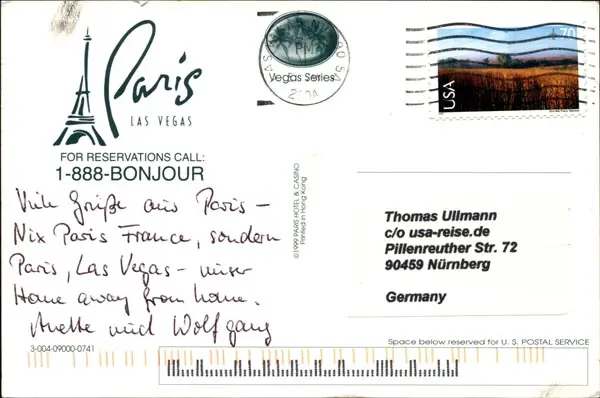 Paris
LAS VEGAS
FOR RESERVATIONS CALL:
1-888-BONJOUR
Vegas Series
70
USA
Viele Grüße aus Paris –
Nix Paris France, sondern
Paris, Las Vegas – unser
Home away from home.
Anette und Wolfgang
©1999 PARIS HOTEL & CASINO
Printed in Hong Kong
Thomas Ullmann
c/o usa-reise.de
Pillenreuther Str. 72
90459 Nürnberg
Germany
3-004-09000-0741
Space below reserved for U. S. POSTAL SERVICE